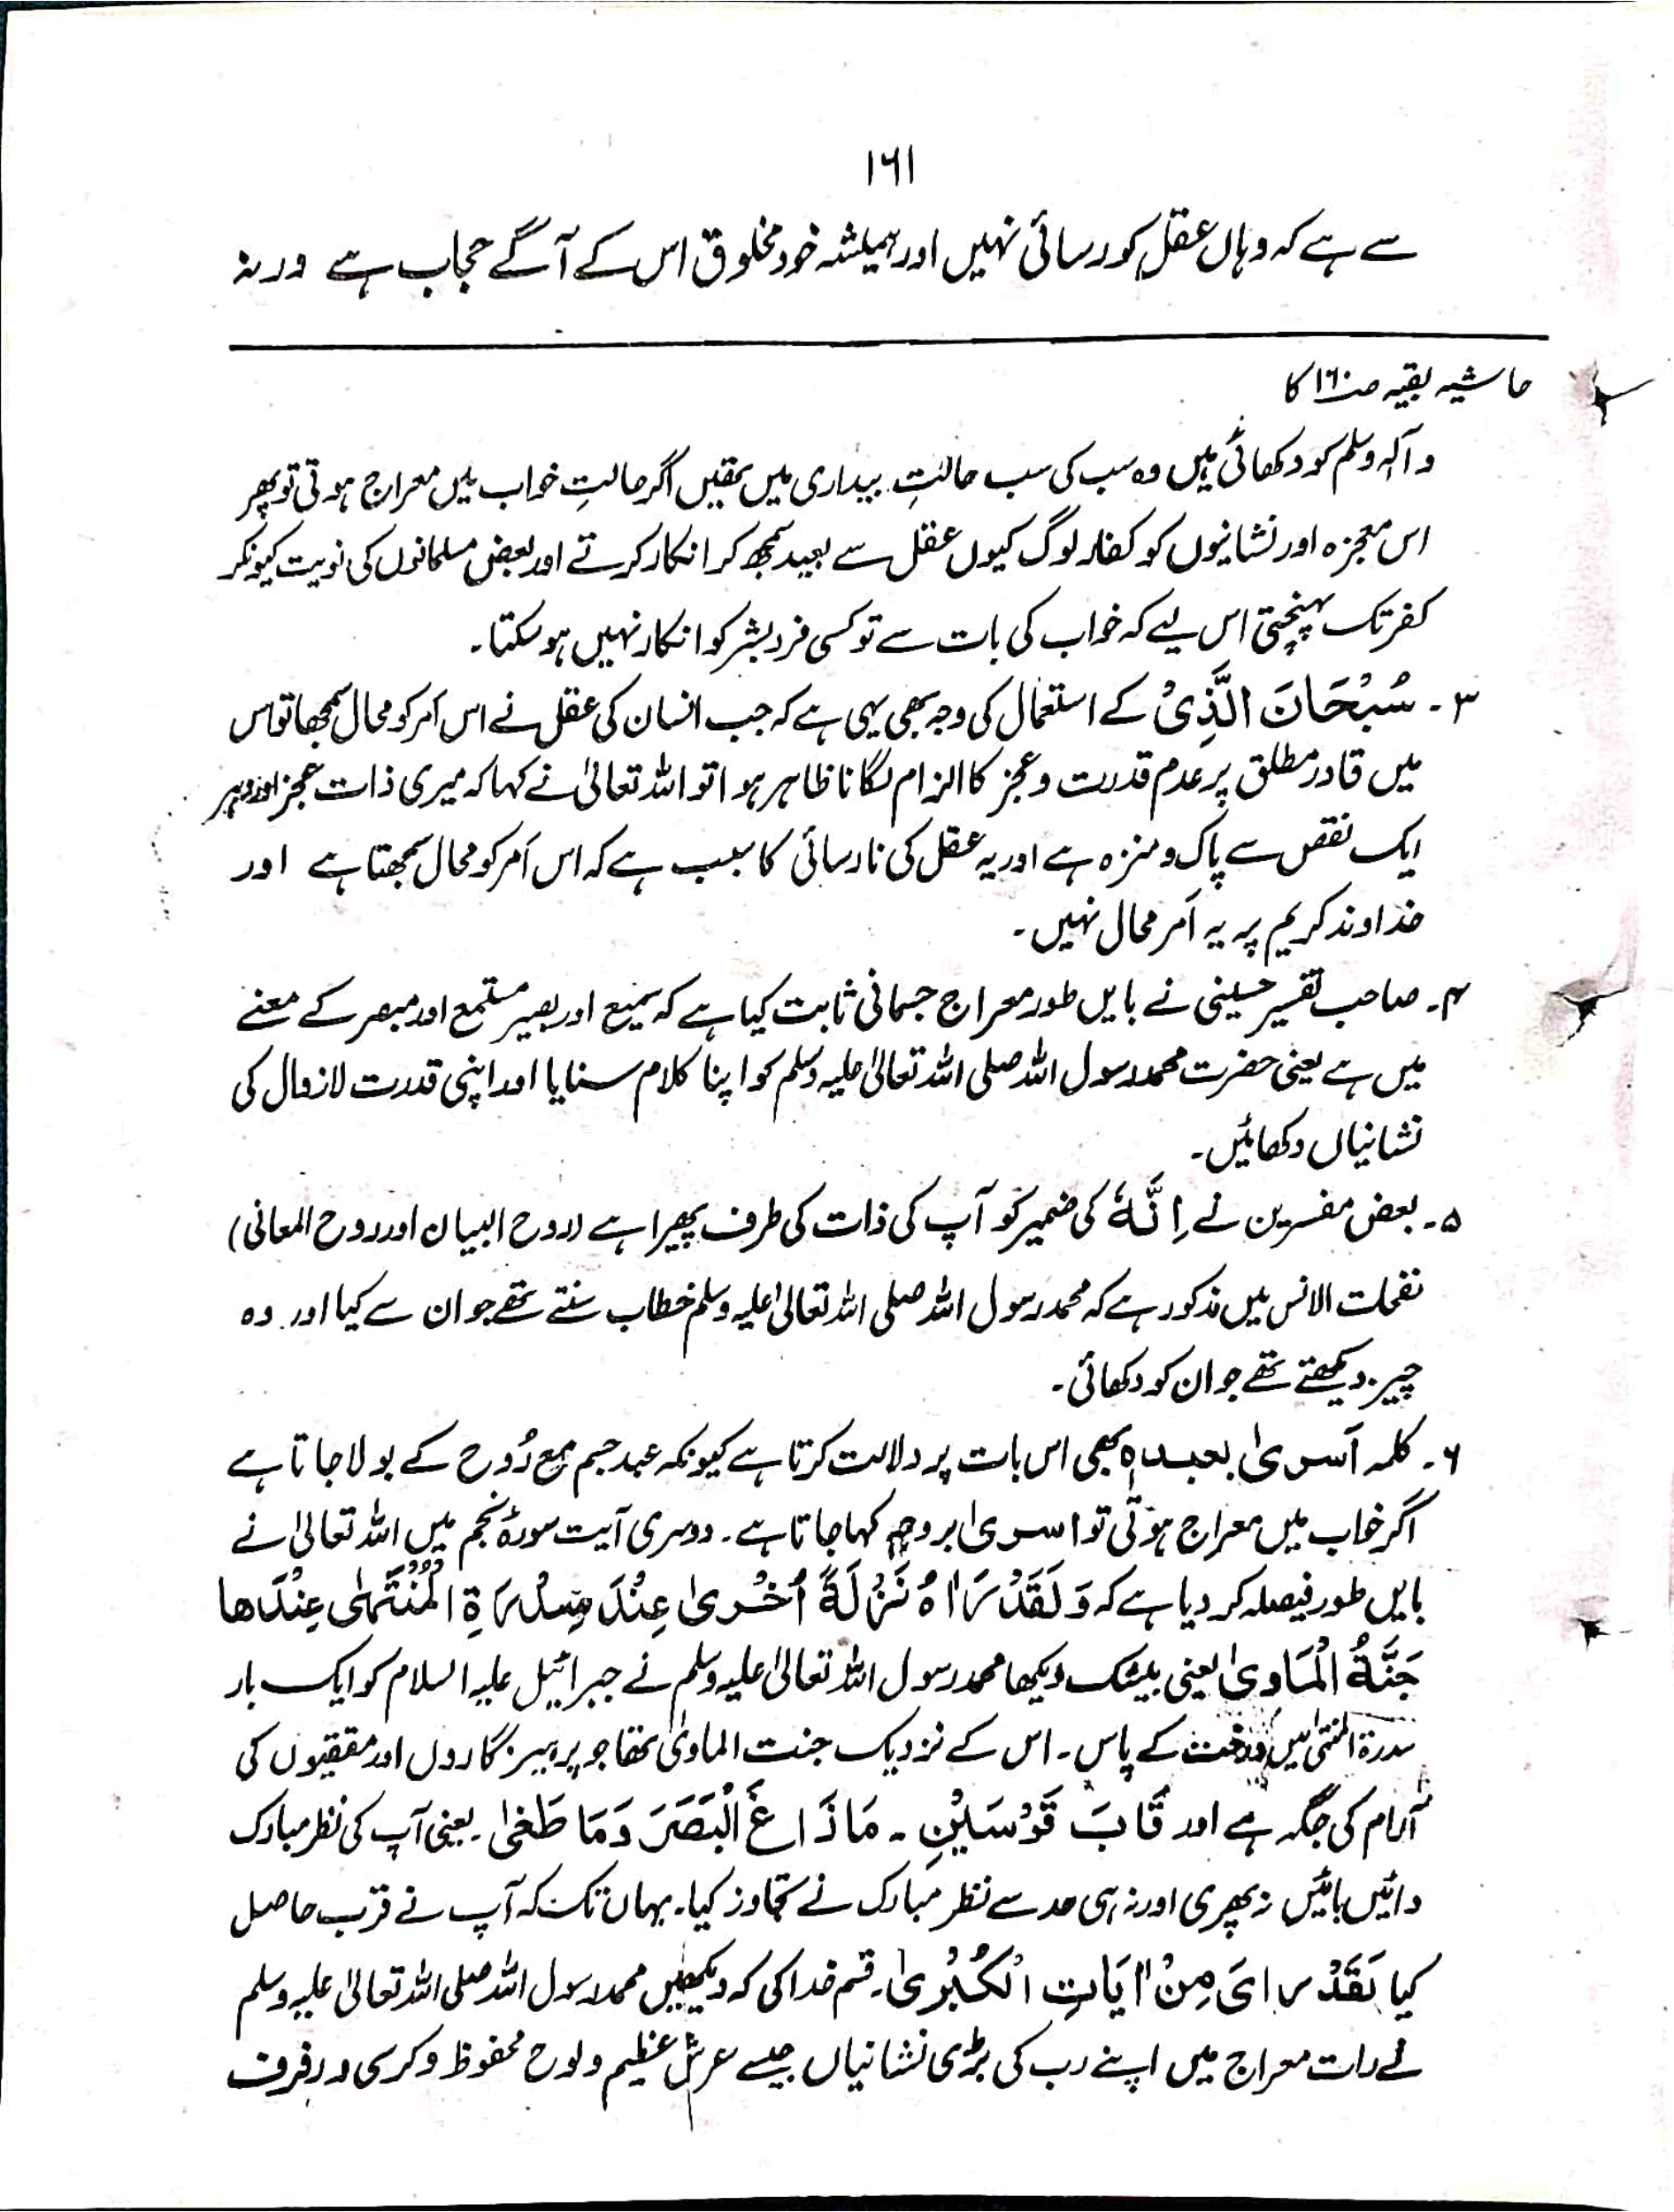 ۱۶۱
سے ہے کہ وہاں عقل کو رسائی نہیں اور ہمیشہ خود مخلوق اس کے آگے حجاب ہے ورنہ
حاشیہ بقیہ صـ۱۶۰ کا
وآلہٖ وسلم کو دکھائی ہیں وہ سب کی سب حالتِ بیداری میں تھیں اگر حالتِ خواب میں معراج ہوتی تو پھر
اس معجزہ اور نشانیوں کو کفار لوگ کیوں عقل سے بعید سمجھ کر انکار کرتے اور بعض مسلمانوں کی نوبت کیونکر
کفر تک پہنچتی اس لیے کہ خواب کی بات سے تو کسی فرد بشر کو انکار نہیں ہو سکتا۔
۳۔ سُبْحَانَ الَّذِیْ کے استعمال کی وجہ بھی یہی ہے کہ جب انسان کی عقل نے اس اَمر کو محال سمجھا تو اس
میں قادر مطلق پر عدم قدرت و عجز کا الزام لگانا ظاہر ہوا تو اللہ تعالیٰ نے کہا کہ میری ذات عجز اور ہر
ایک نقص سے پاک و منزہ ہے اور یہ عقل کی نارسائی کا سبب ہے کہ اس اَمر کو محال سمجھتا ہے اور
خداوند کریم پر یہ اَمر محال نہیں۔
۴۔ صاحب تفسیر حسینی نے بایں طور معراج جسمانی ثابت کیا ہے کہ سمیع اور بصیر مستمع اور مبصر کے معنے
میں ہے یعنی حضرت محمد رسول اللہ صلی اللہ تعالیٰ علیہ وسلم کو اپنا کلام سنایا اور اپنی قدرت لازوال کی
نشانیاں دکھائیں۔
۵۔ بعض مفسرین نے اِنَّہٗ کی ضمیر کو آپ کی ذات کی طرف پھیرا ہے (روح البیان اور روح المعانی)
نفحات الانس میں مذکور ہے کہ محمد رسول اللہ صلی اللہ تعالیٰ علیہ وسلم خطاب سنتے تھے جو ان سے کیا اور وہ
چیز دیکھتے تھے جو ان کو دکھائی۔
۶۔ کلمہ اَسریٰ بعبدہٖ بھی اس بات پر دلالت کرتا ہے کیونکہ عبد جسم مع رُوح کے بولا جاتا ہے
اگر خواب میں معراج ہوتی تو اسریٰ بروحہٖ کہا جاتا ہے۔ دوسری آیت سورۂ نجم میں اللہ تعالیٰ نے
بایں طور فیصلہ کر دیا ہے کہ وَلَقَدْ رَاٰہُ نَزْلَةً اُخْریٰ عِنْدَ سِدْرَةِ الْمُنْتَہٰی عِنْدَھا
جَنَّةُ الْمَاویٰ یعنی بیشک دیکھا محمد رسول اللہ تعالیٰ علیہ وسلم نے جبرائیل علیہ السلام کو ایک بار
سدرۃ المنتہیٰ میں درخت کے پاس۔ اس کے نزدیک جنت الماویٰ تھا جو پرہیزگاروں اور متقیوں کی
آرام کی جگہ ہے اور قَابَ قَوْسَیْنِ۔ مَاذَاغَ الْبَصَرَ وَمَا طَغیٰ۔ یعنی آپ کی نظر مبارک
دائیں بائیں نہ پھری اور نہ ہی حد سے نظر مبارک نے تجاوز کیا۔ یہاں تک کہ آپ نے قرب حاصل
کیا لَقَدْ رایَ مِنْ اٰیَاتِ الْکُبْریٰ۔ قسم خدا کی کہ دیکھیں محمد رسول اللہ صلی اللہ تعالیٰ علیہ وسلم
نے رات معراج میں اپنے رب کی بڑی نشانیاں جیسے عرش عظیم و لوح محفوظ و کرسی و رفرف